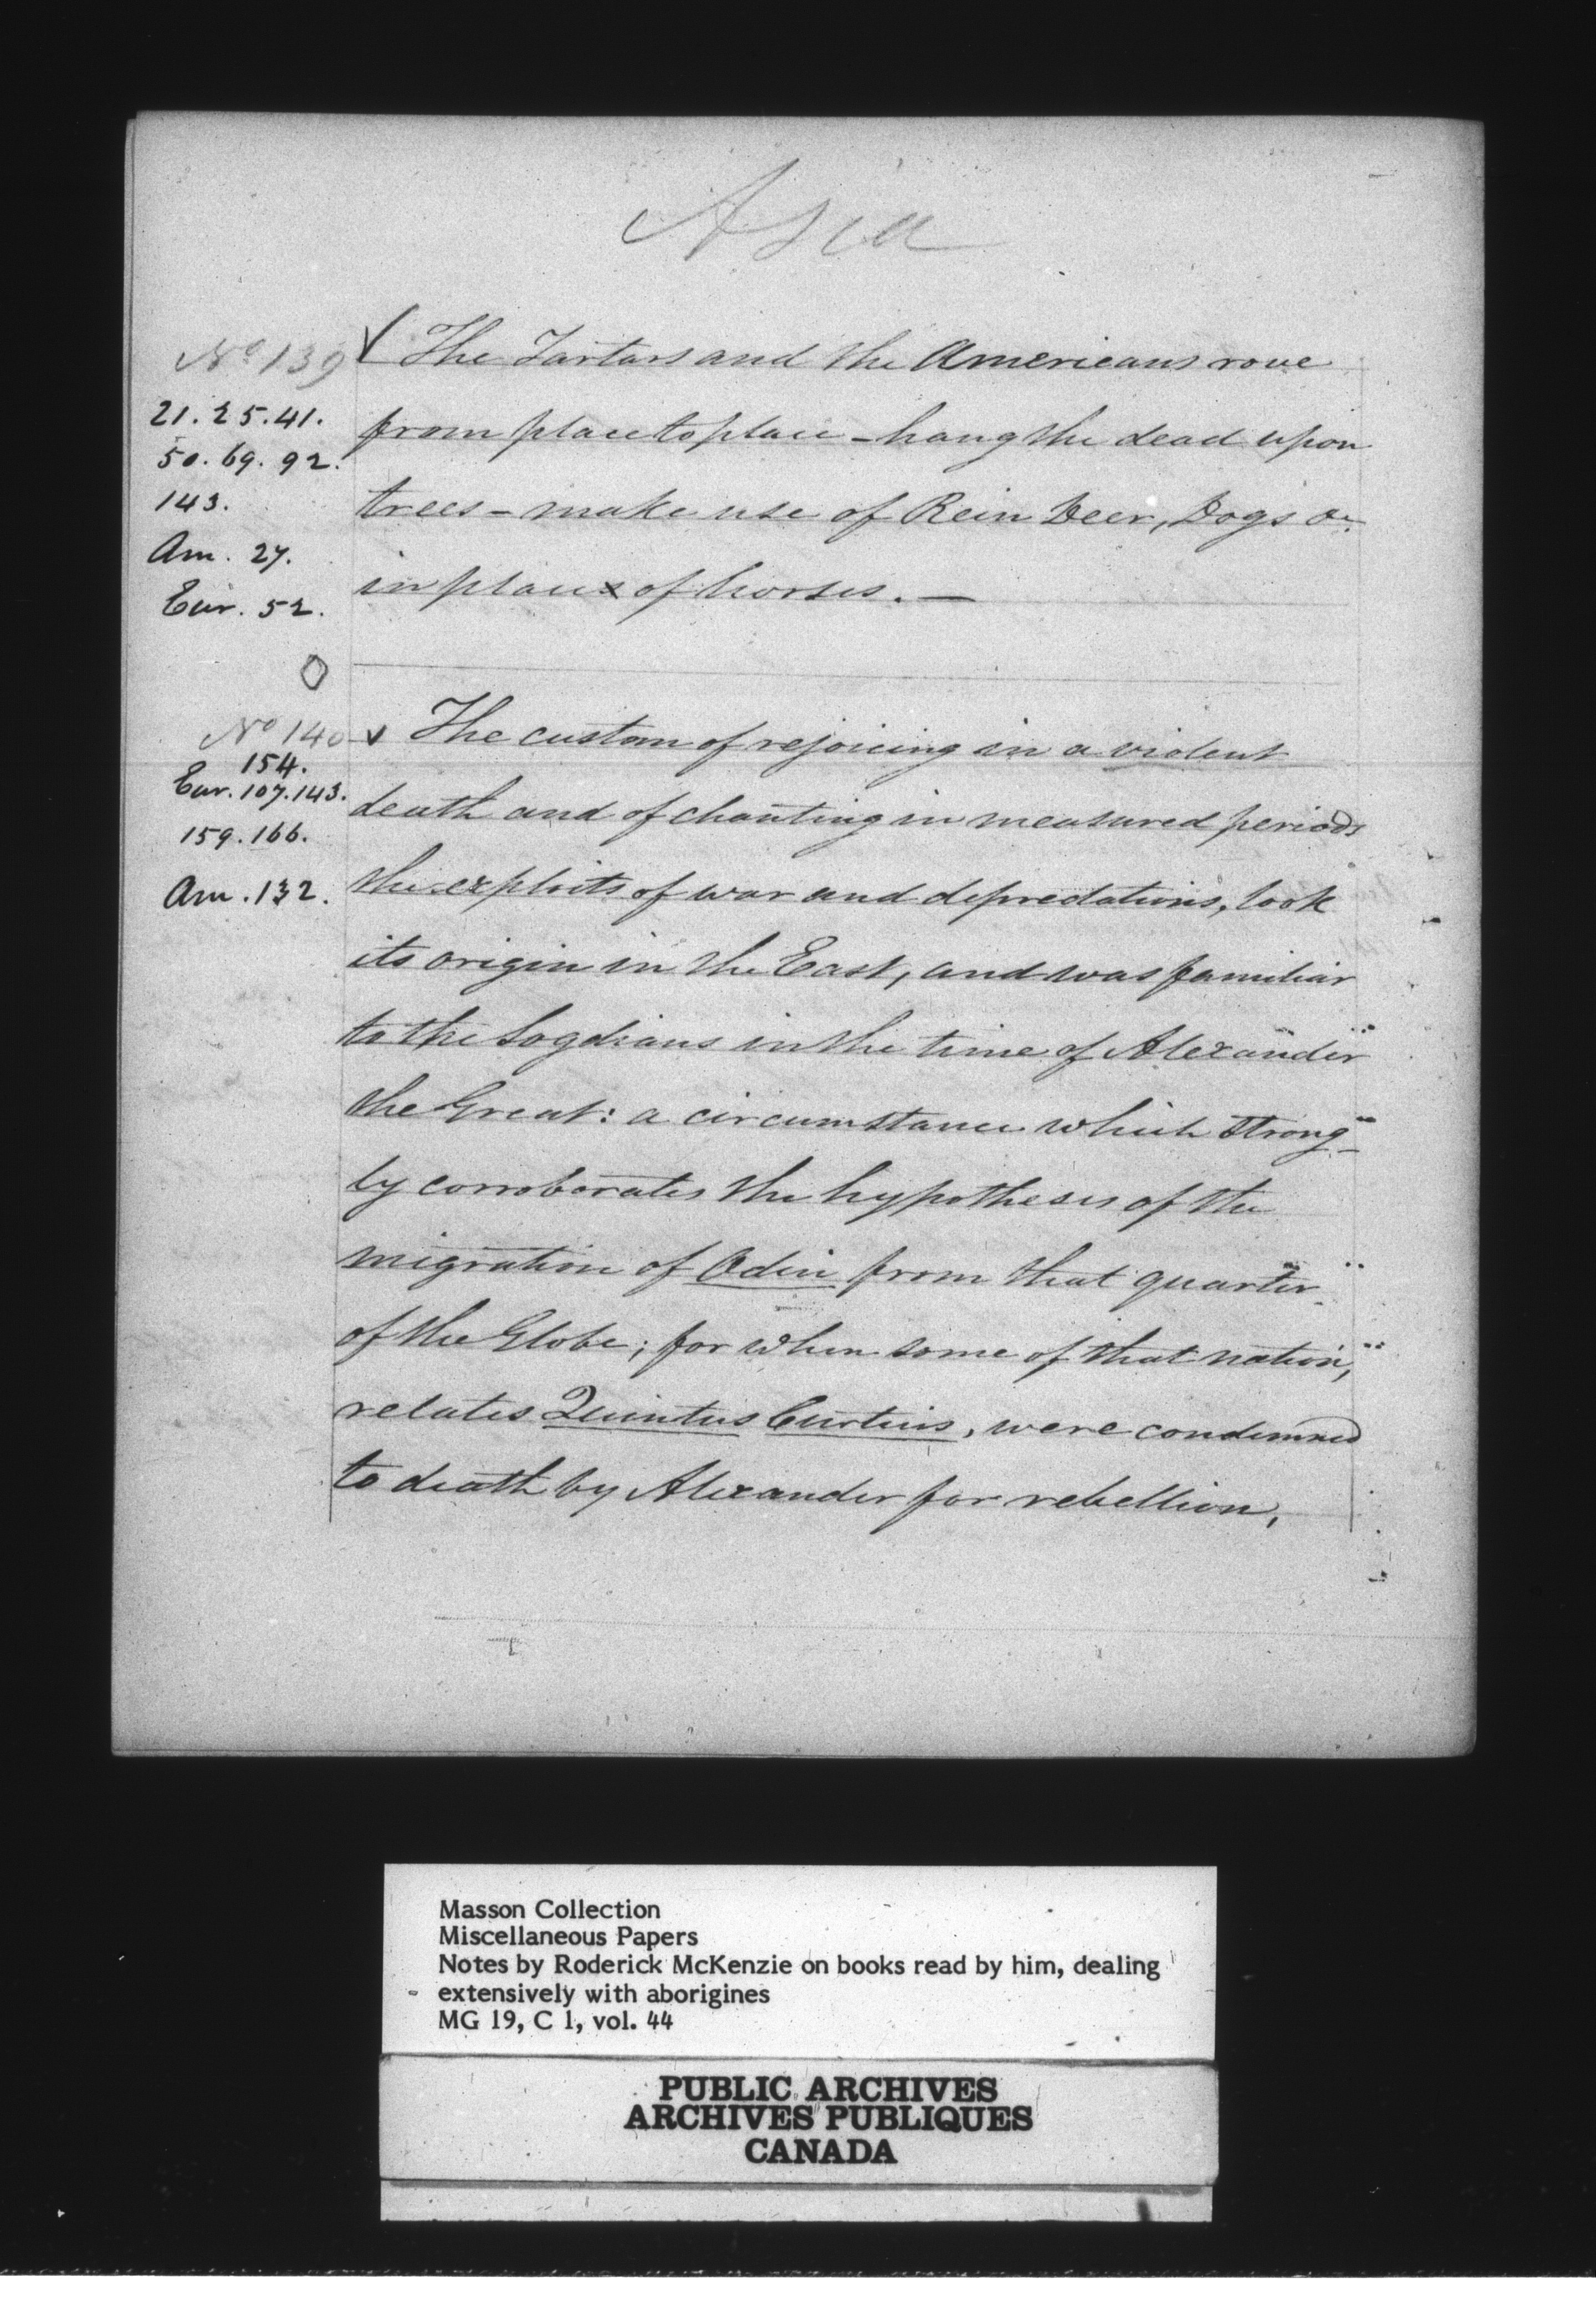 Asia
No 139
21. 25. 41.
50. 69. 92.
143.
Am. 27.
Eur. 52.
The Tartars and the Americans rove
from place to place – hang the dead upon
trees – make use of Rein Deer, Dogs &c.
in place of horses. —
No 140
154.
Eur. 107. 143.
159. 166.
Am. 132.
The custom of rejoicing in a violent
death and of chanting in measured periods
the exploits of war and depredations, took
its origin in the East, and was familiar
to the Sogdians in the time of Alexander
the Great: a circumstance which strong-
ly corroborates the hypothesis of the
migration of Odin from that quarter
of the Globe; for when some of that nation,
relates Quintus Curtius, were condemned
to death by Alexander for rebellion,
Masson Collection
Miscellaneous Papers
Notes by Roderick McKenzie on books read by him, dealing
extensively with aborigines
MG 19, C 1, vol. 44
PUBLIC ARCHIVES
ARCHIVES PUBLIQUES
CANADA